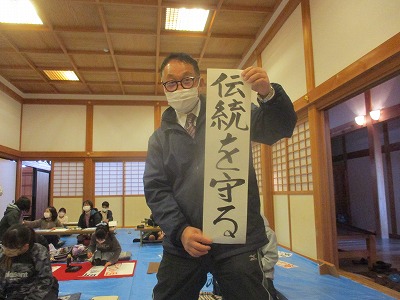 伝統を守る